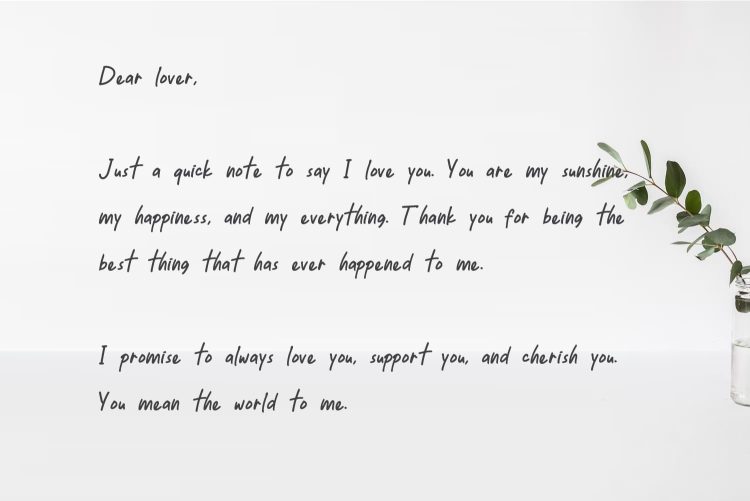 Dear lover,
Just a quick note to say I love you. You are my sunshine,
my happiness, and my everything. Thank you for being the
best thing that has ever happened to me.
I promise to always love you, support you, and cherish you.
You mean the world to me.